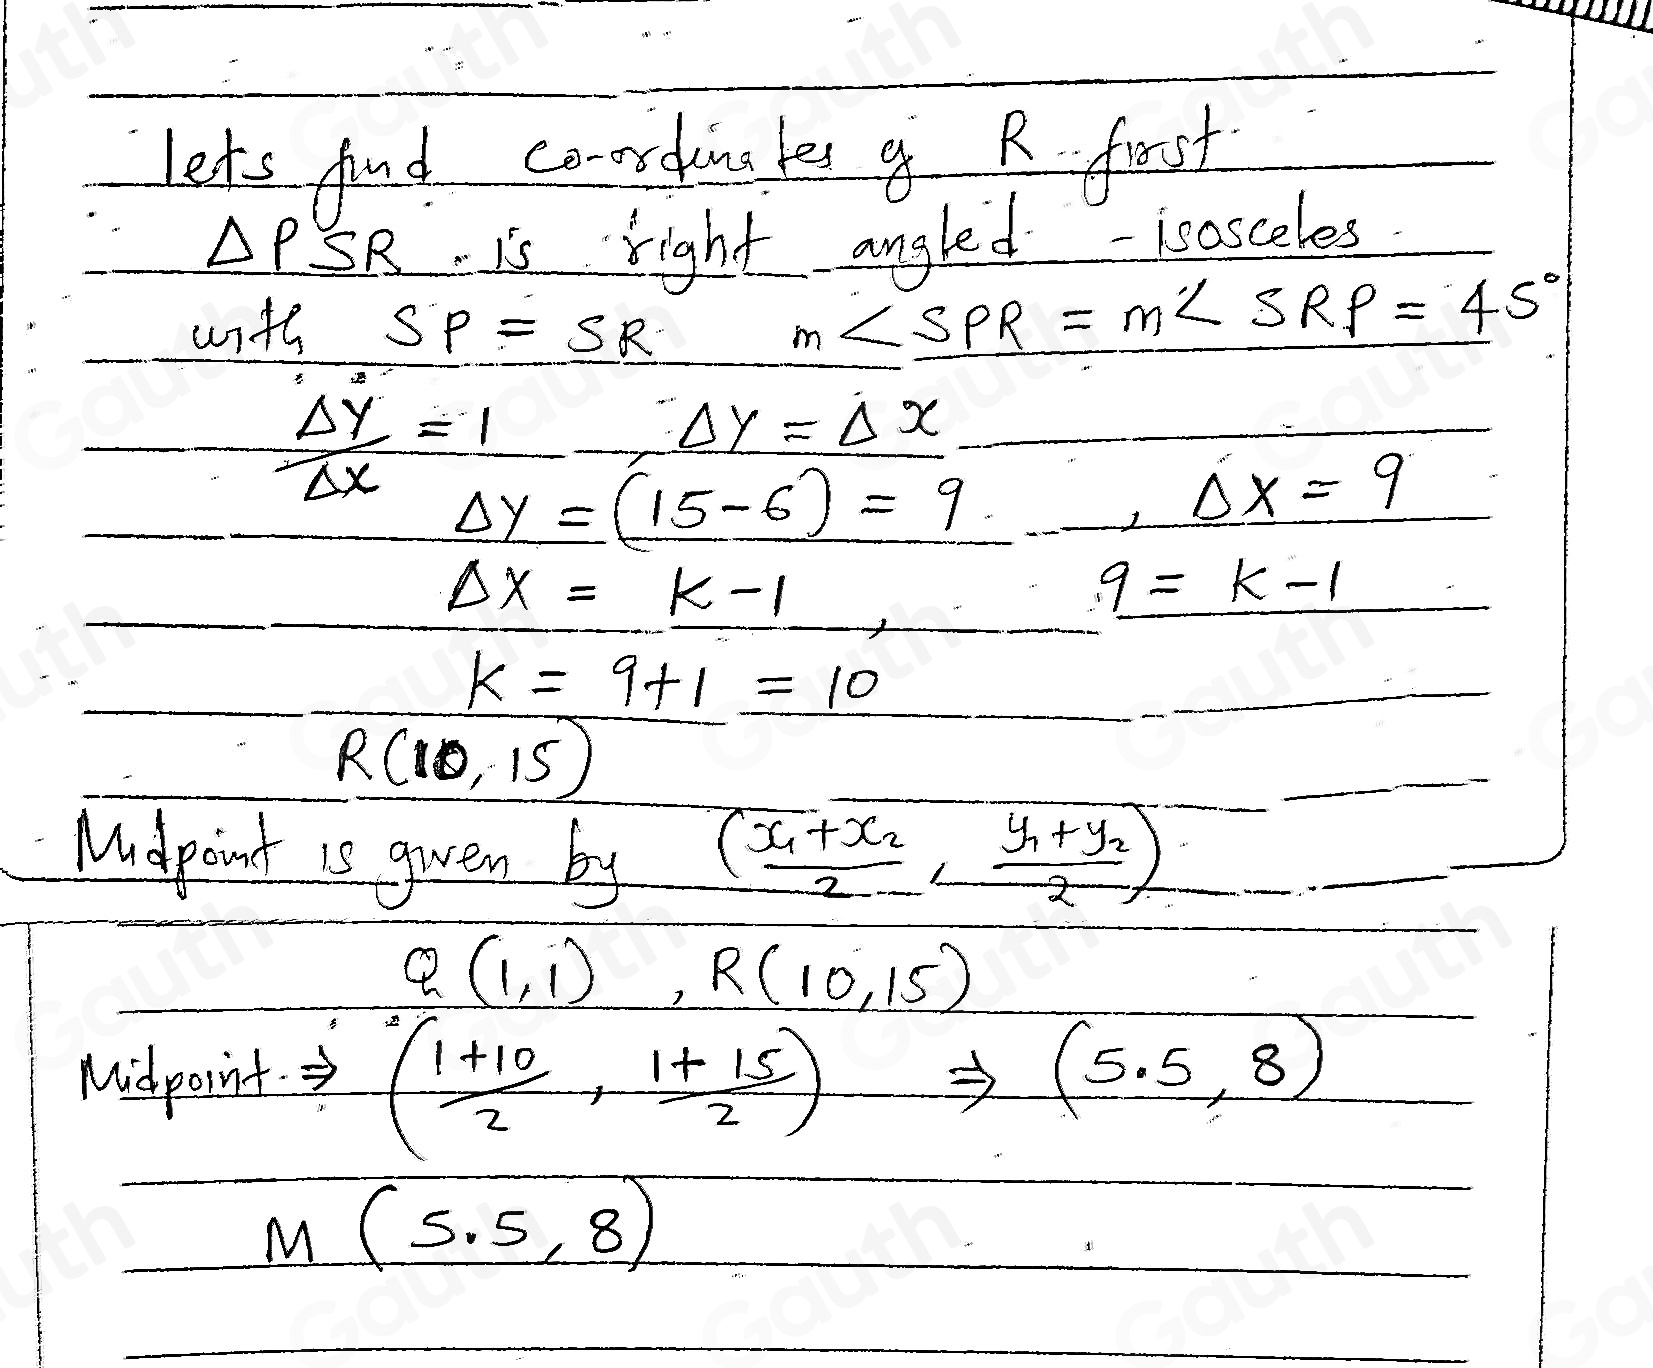 lets find co-ordinates of R first
ΔPSR is right angled - isosceles
with SP = SR m<SPR = m<SRP = 45°
ΔY/ΔX = 1 , ΔY = Δx
ΔY = (15-6) = 9 , ΔX = 9
ΔX = K-1 , 9 = K-1
K = 9+1 = 10
R(10, 15)
Midpoint is given by (x₁+x₂/2 , y₁+y₂/2)
Q (1,1) , R(10,15)
Midpoint ⇒ (1+10/2 , 1+15/2) ⇒ (5.5, 8)
M (5.5, 8)
Gauth